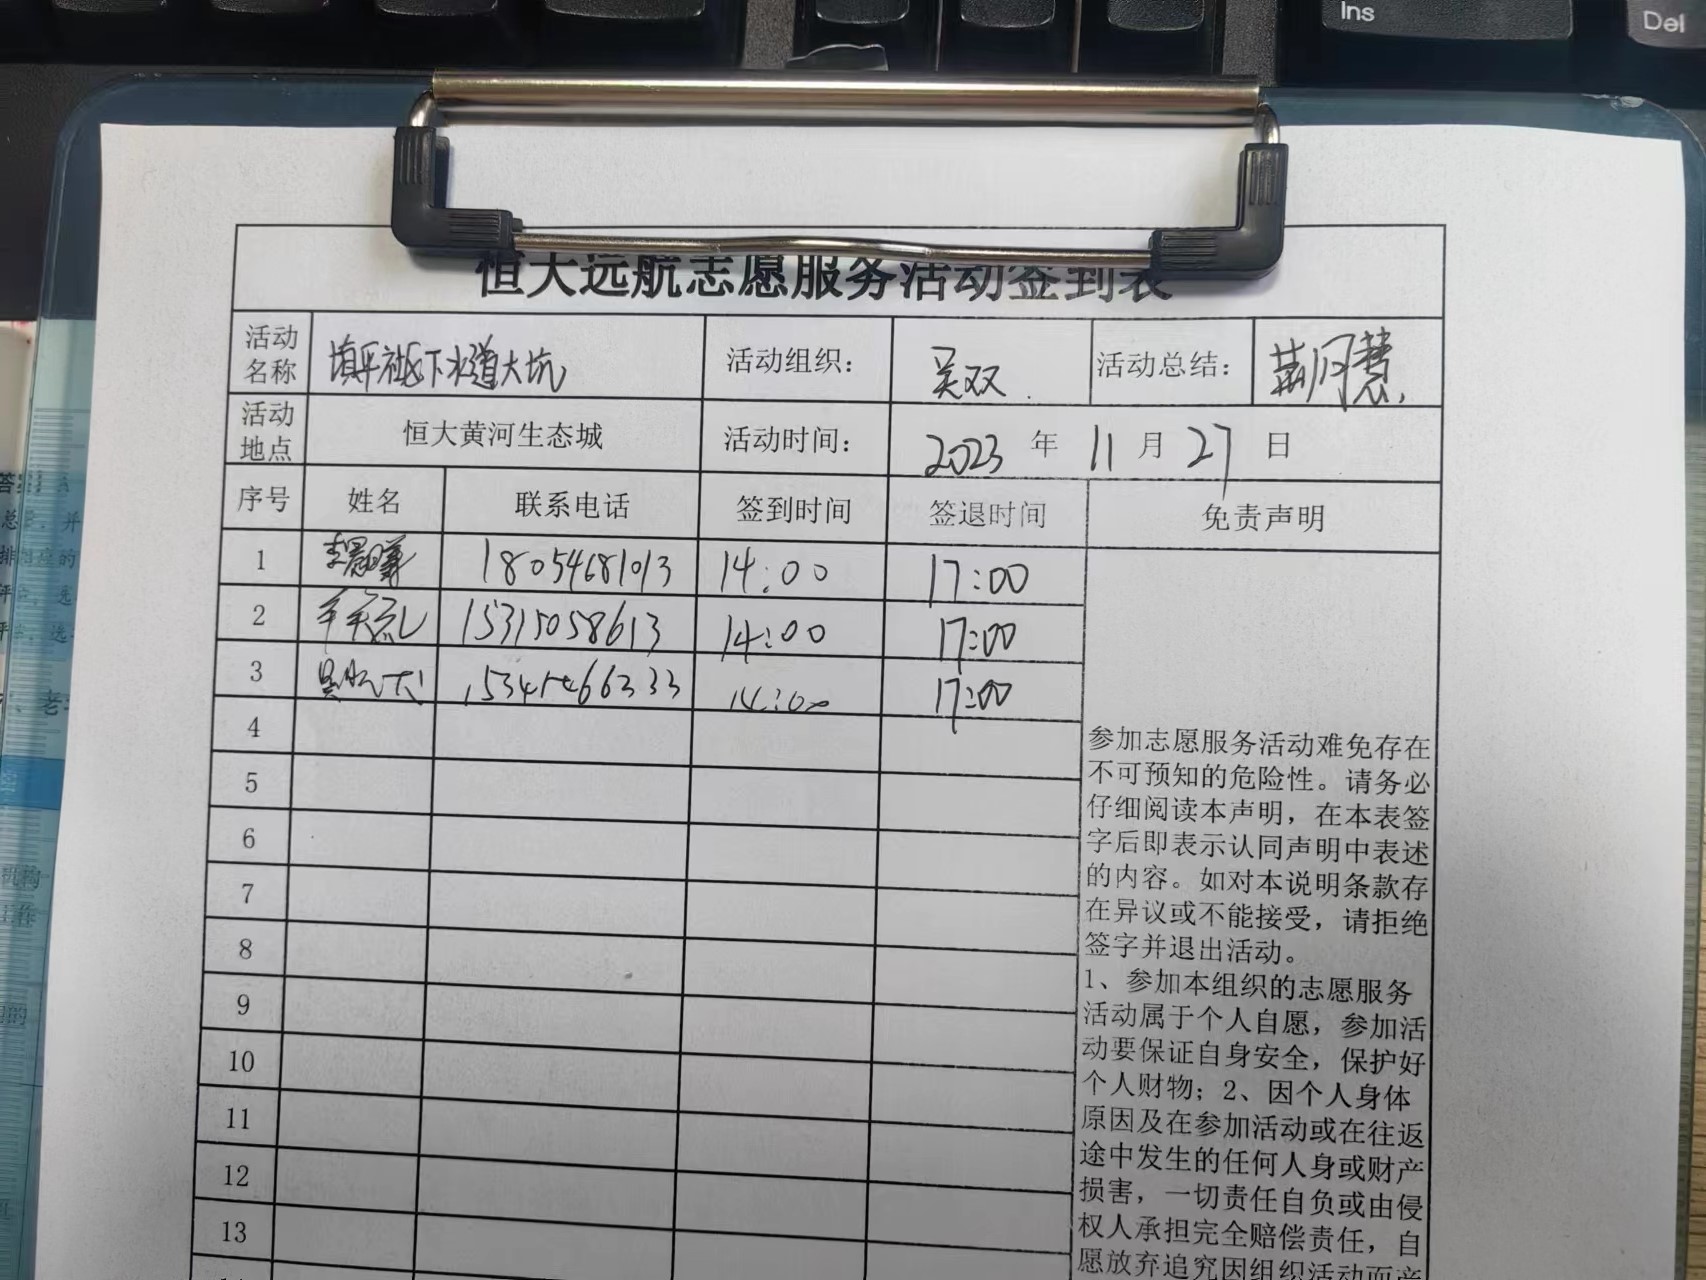 Ins
Del
恒大远航志愿服务活动签到表
活动名称 填平社区下水道大坑 活动组织： 吴双 活动总结： 荆月慧
活动地点 恒大黄河生态城 活动时间： 2023 年 11 月 27 日
序号 姓名 联系电话 签到时间 签退时间 免责声明
1 李晨曦 18054681013 14:00 17:00
2 15315058613 14:00 17:00
3 14:00 17:00
4
5
6
7
8
9
10
11
12
13
参加志愿服务活动难免存在
不可预知的危险性。请务必
仔细阅读本声明，在本表签
字后即表示认同声明中表述
的内容。如对本说明条款存
在异议或不能接受，请拒绝
签字并退出活动。
1、参加本组织的志愿服务
活动属于个人自愿，参加活
动要保证自身安全，保护好
个人财物；2、因个人身体
原因及在参加活动或在往返
途中发生的任何人身或财产
损害，一切责任自负或由侵
权人承担完全赔偿责任，自
愿放弃追究因组织活动而产